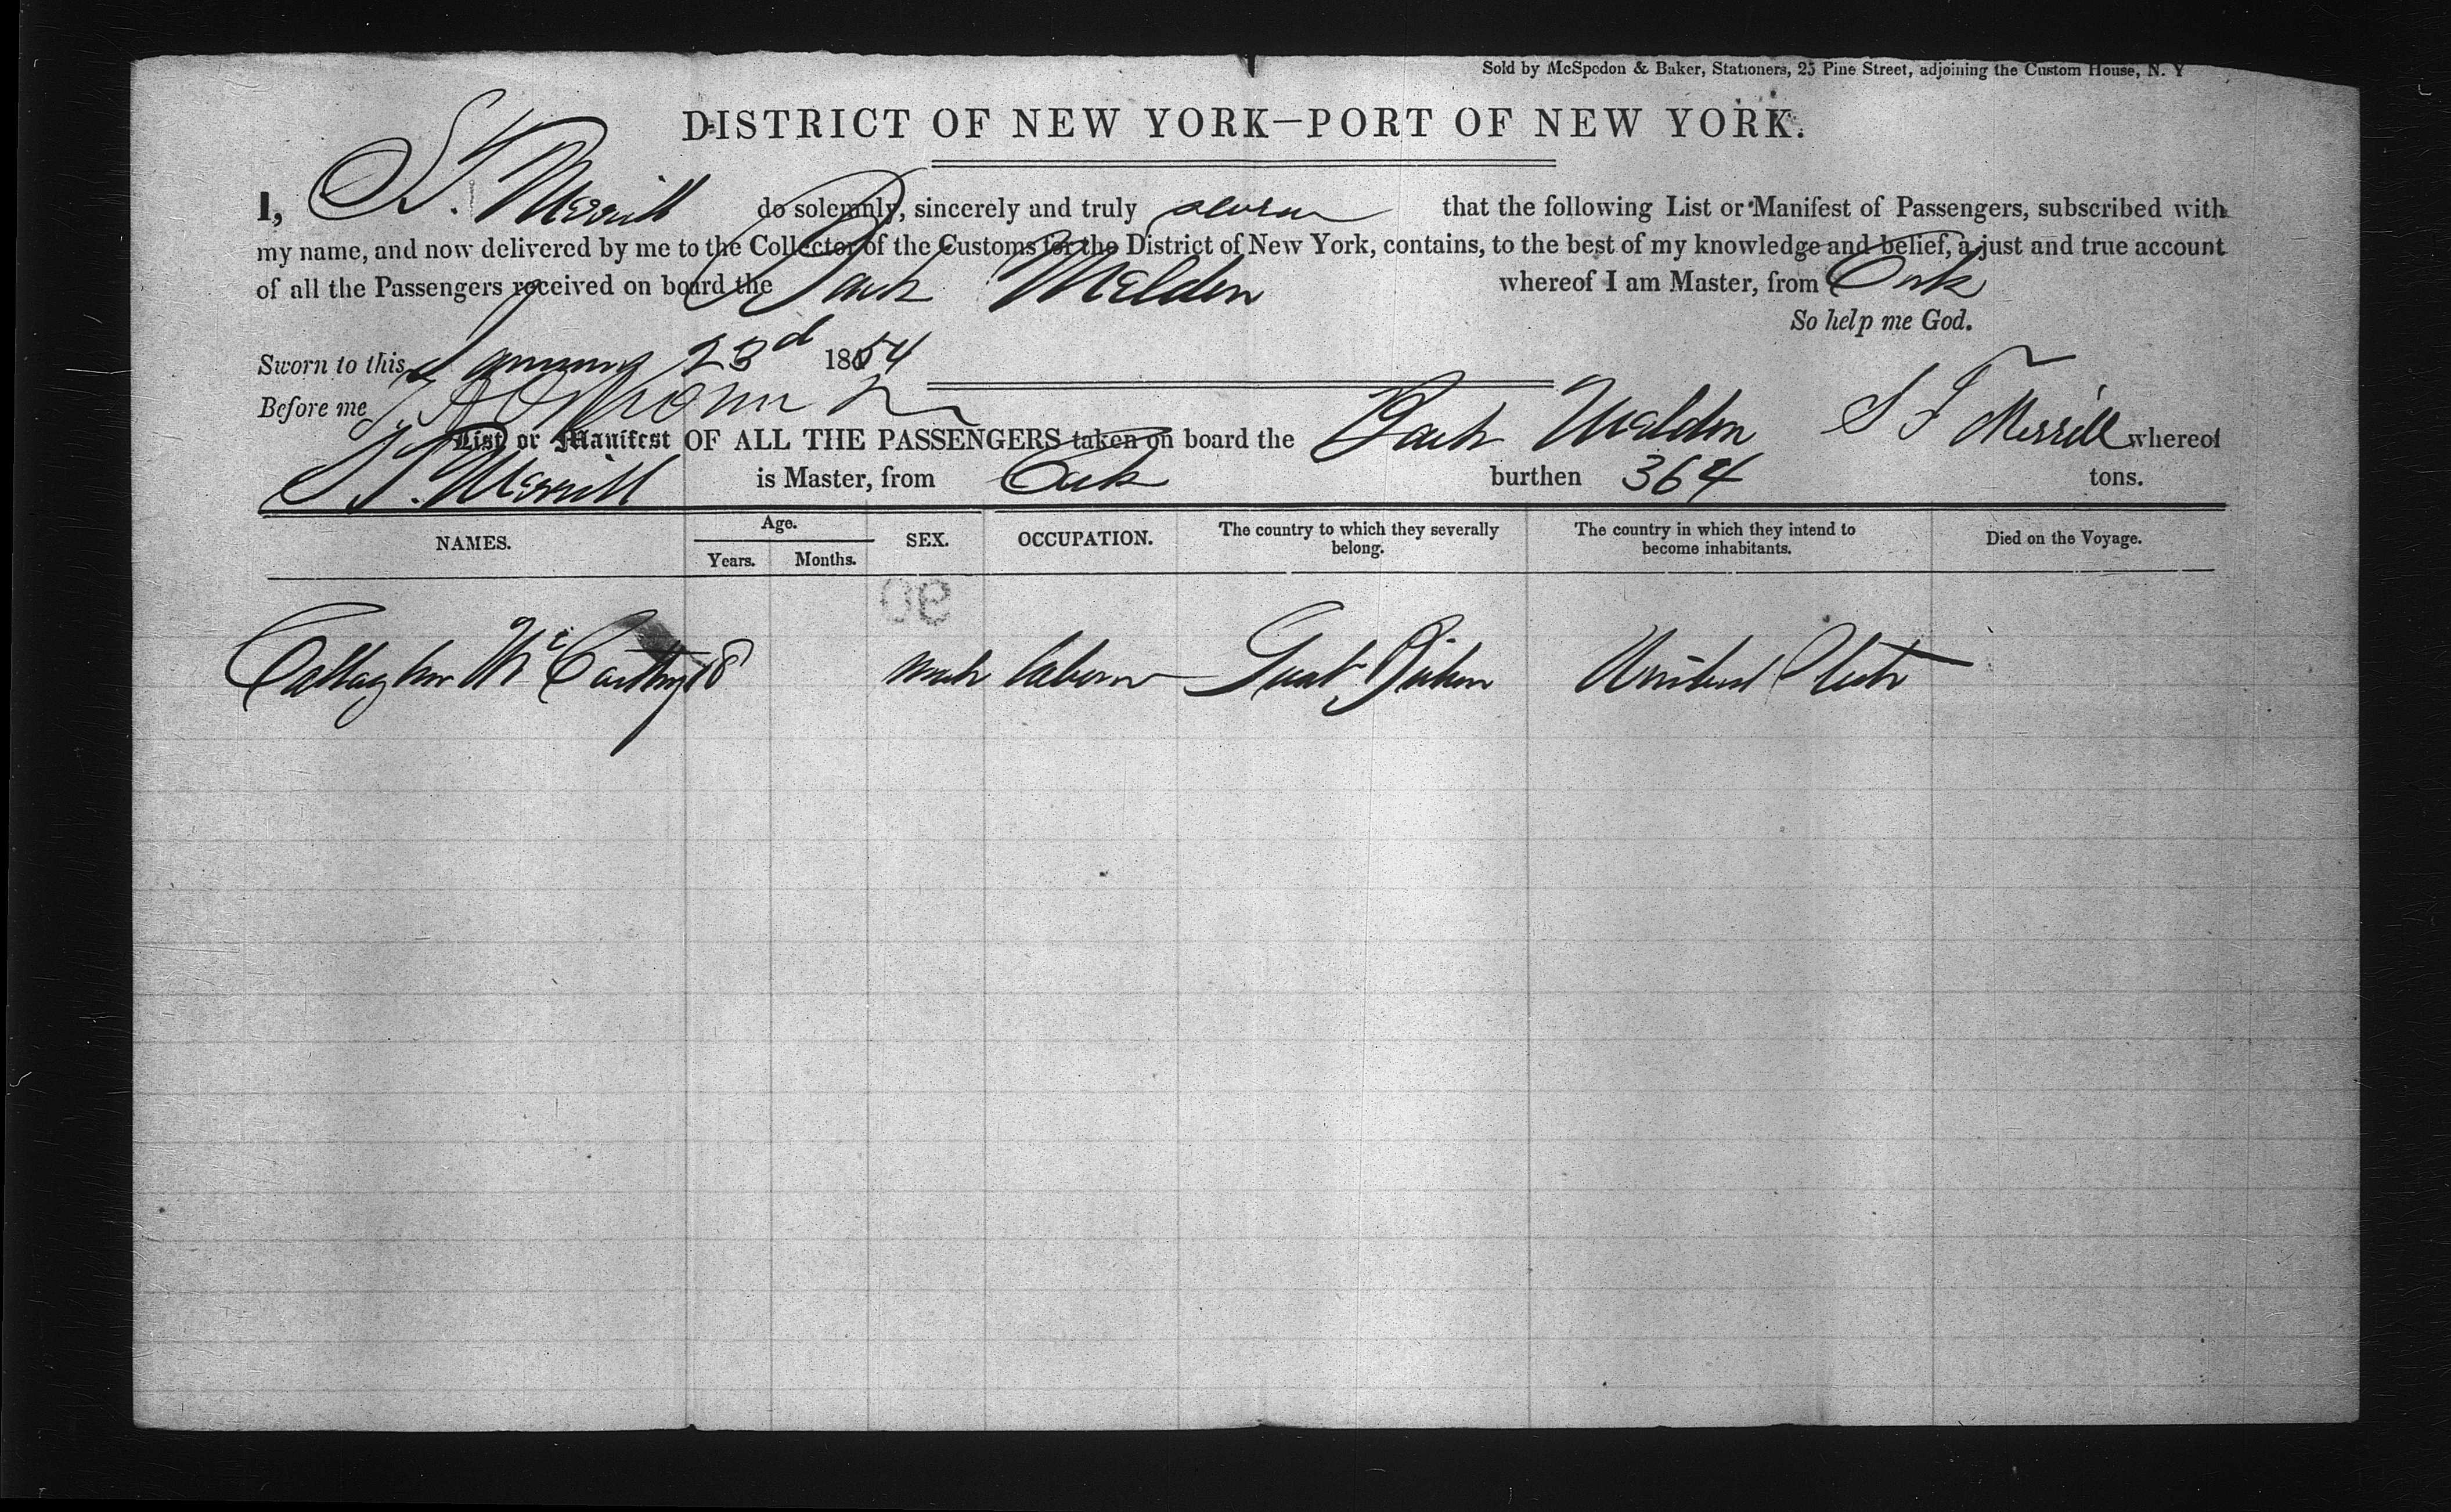 Sold by McSpedon & Baker, Stationers, 25 Pine Street, adjoining the Custom House, N. Y
DISTRICT OF NEW YORK—PORT OF NEW YORK.
I, S. F. Merrill do solemnly, sincerely and truly swear that the following List or Manifest of Passengers, subscribed with
my name, and now delivered by me to the Collector of the Customs for the District of New York, contains, to the best of my knowledge and belief, a just and true account
of all the Passengers received on board the Bark Walden whereof I am Master, from Cork
So help me God.
Sworn to this January 23d 1854
Before me
S F Merrill
List or Manifest OF ALL THE PASSENGERS taken on board the Bark Walden whereof
S. F. Merrill is Master, from Cork burthen 364 tons.
NAMES. Age. Years. Months. SEX. OCCUPATION. The country to which they severally belong. The country in which they intend to become inhabitants. Died on the Voyage.
90
Callaghan McCarthy 18 male laborer Great Britain United States